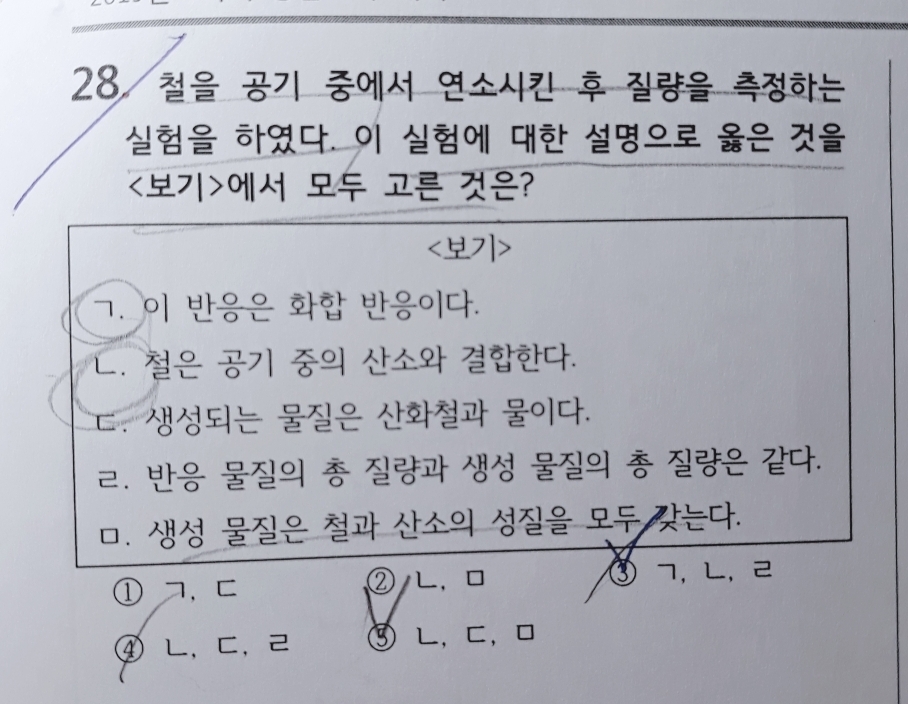 28. 철을 공기 중에서 연소시킨 후 질량을 측정하는
실험을 하였다. 이 실험에 대한 설명으로 옳은 것을
<보기>에서 모두 고른 것은?
<보기>
ㄱ. 이 반응은 화합 반응이다.
ㄴ. 철은 공기 중의 산소와 결합한다.
ㄷ. 생성되는 물질은 산화철과 물이다.
ㄹ. 반응 물질의 총 질량과 생성 물질의 총 질량은 같다.
ㅁ. 생성 물질은 철과 산소의 성질을 모두 갖는다.
① ㄱ, ㄷ ② ㄴ, ㅁ ③ ㄱ, ㄴ, ㄹ
④ ㄴ, ㄷ, ㄹ ⑤ ㄴ, ㄷ, ㅁ